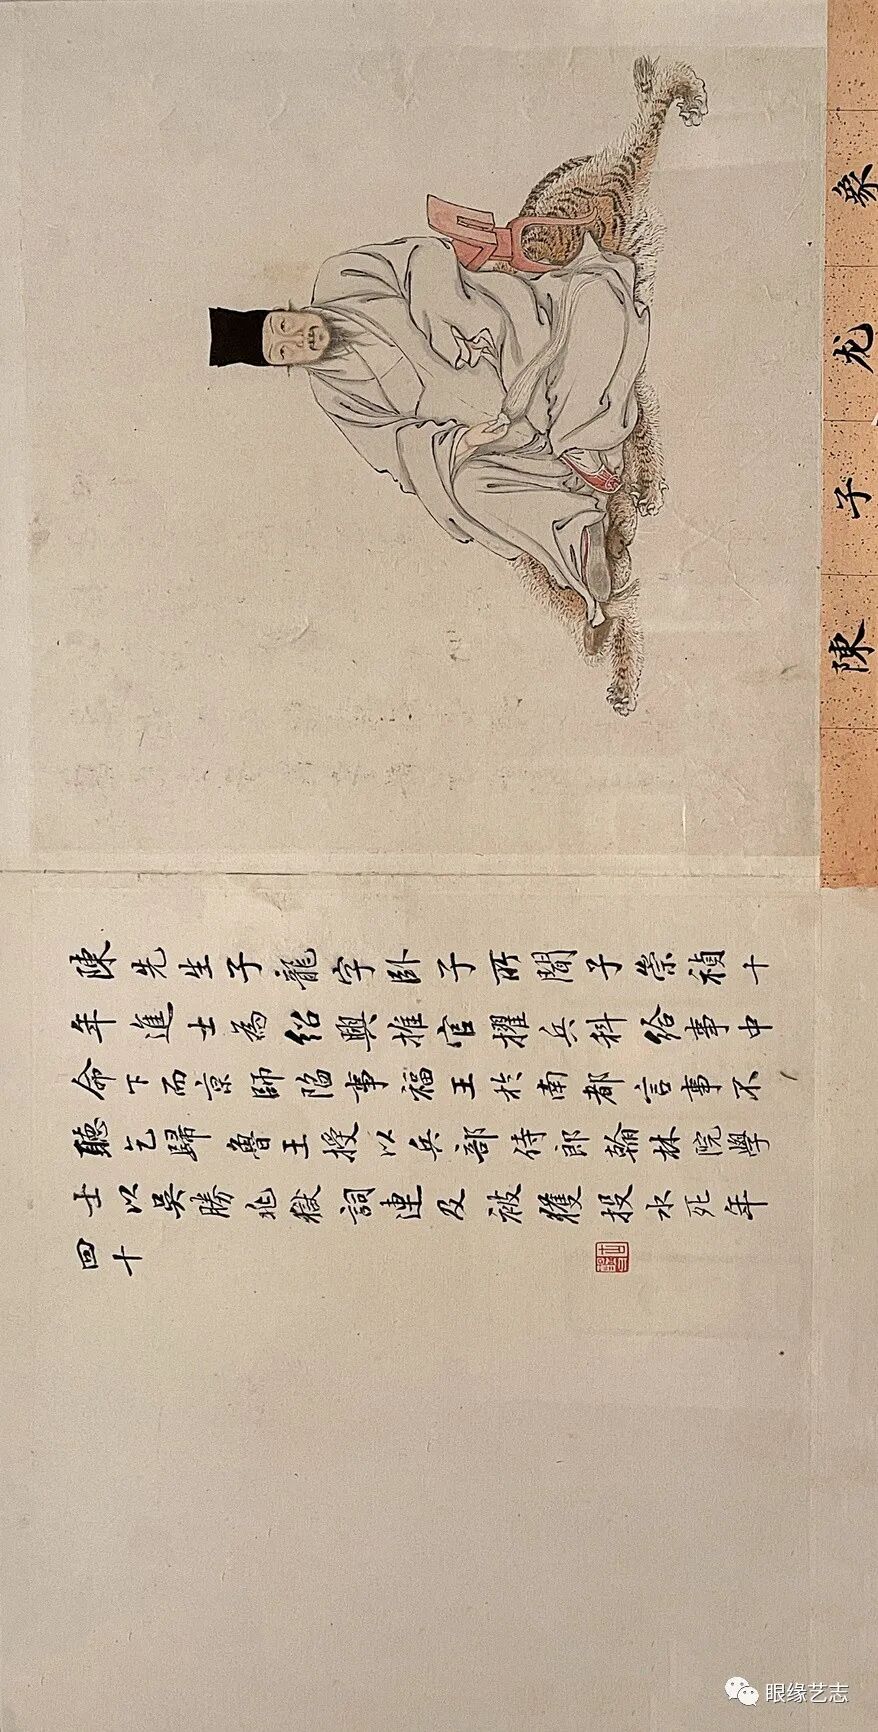 陳子龙象
陳先生子龍字卧子所聞子崇禎十
年進士為紹興推官擢兵科給事中
命下而京師陷事福王於南都言事不
聽乞歸魯王授以兵部侍郎翰林院學
士以吳勝兆獄詞連及被獲投水死年
四十
眼缘艺志